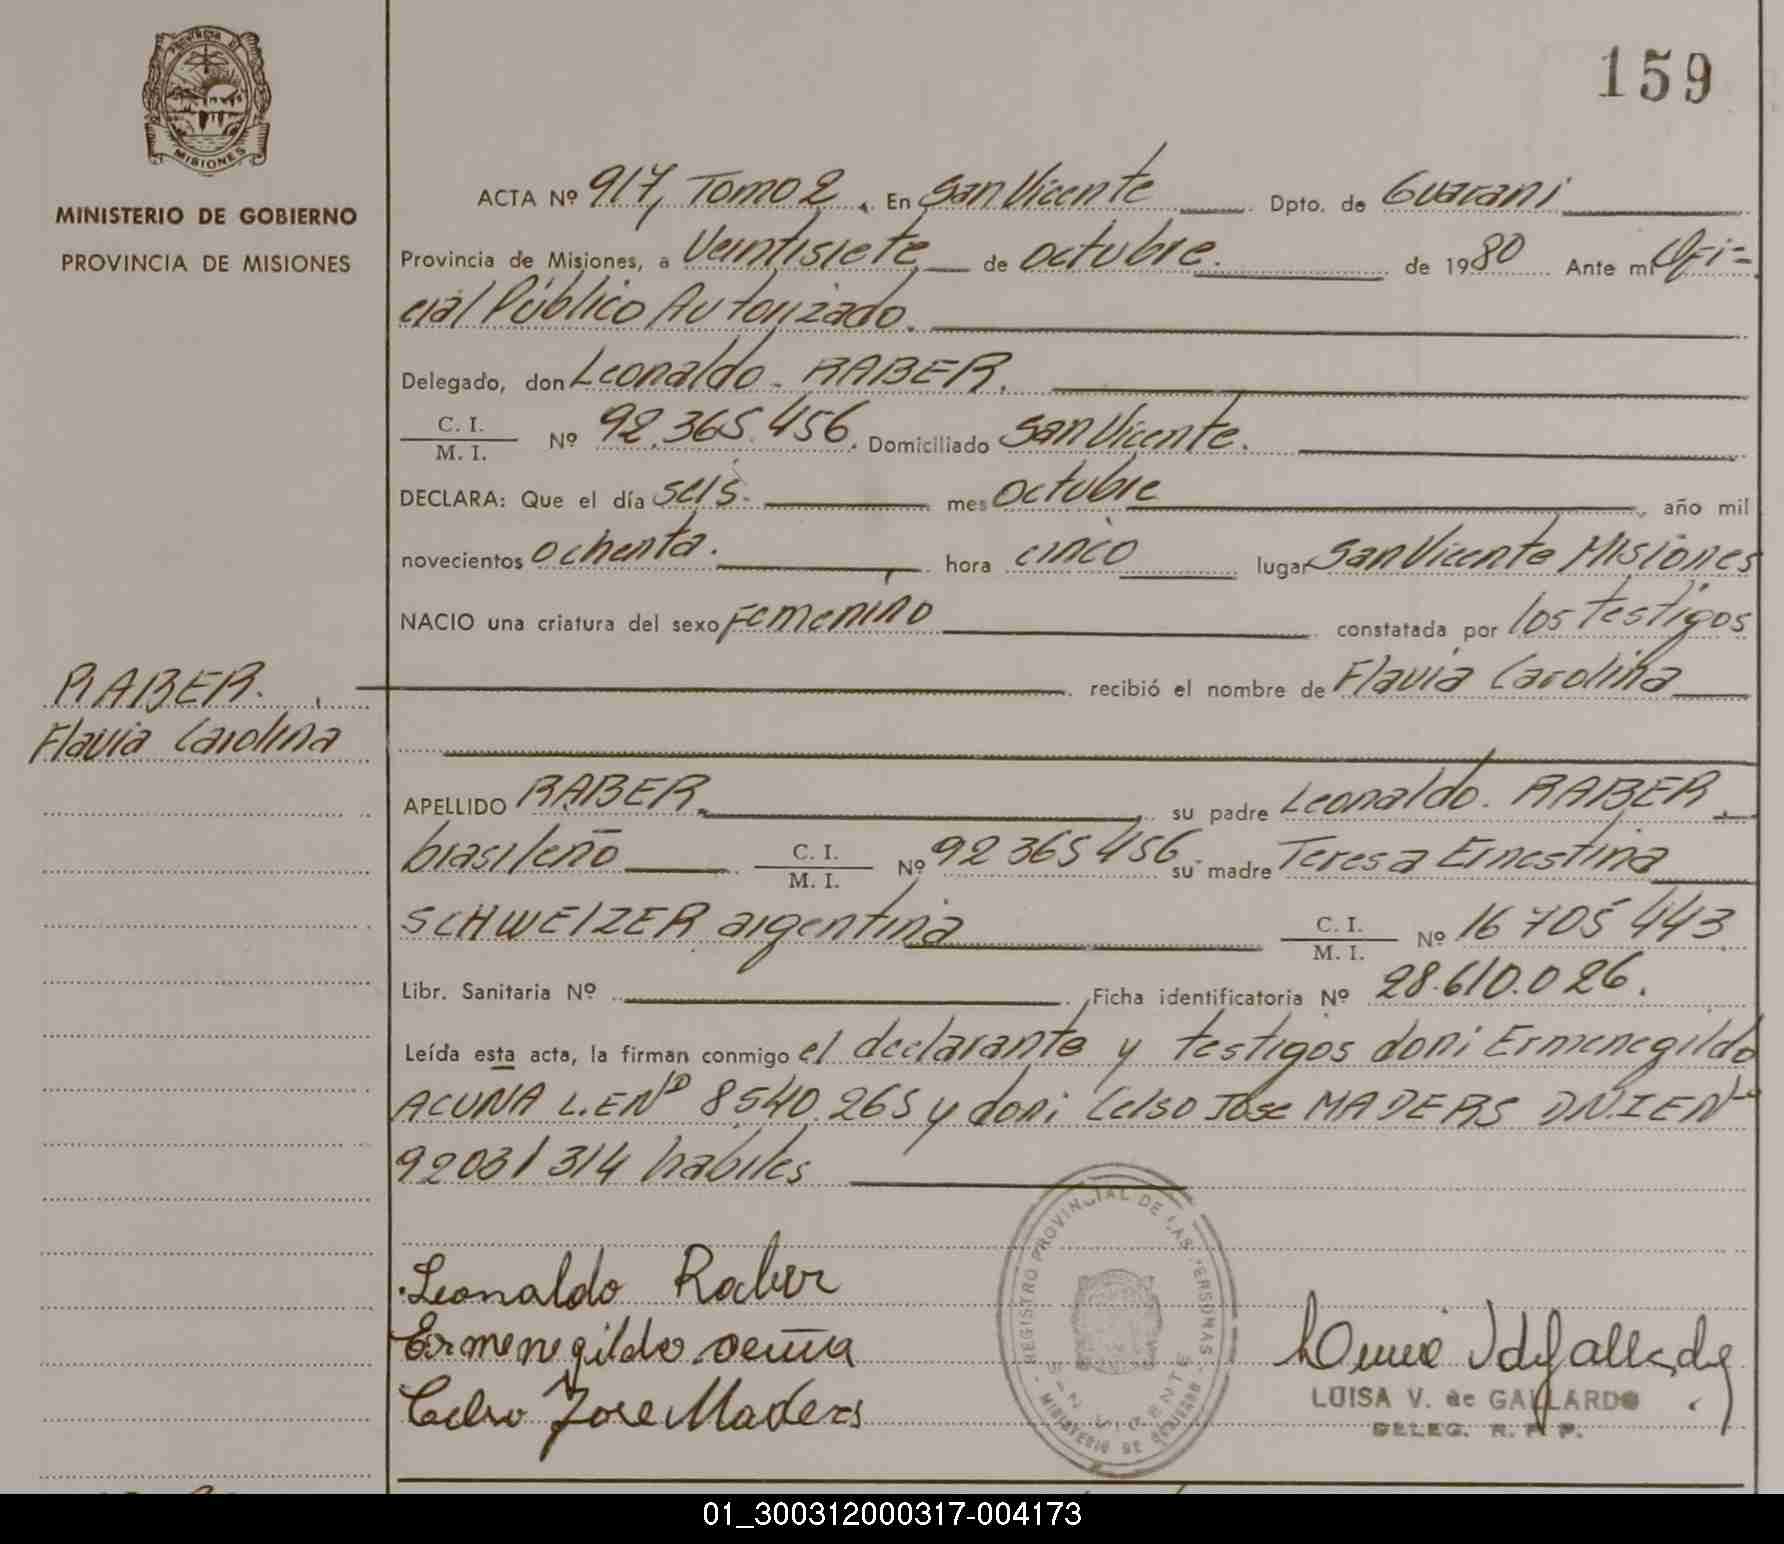 159
PROVINCIA DE
MISIONES
MINISTERIO DE GOBIERNO
PROVINCIA DE MISIONES
ACTA Nº 917, Tomo 2. En San Vicente Dpto. de Guarani
Provincia de Misiones, a Veintisiete de octubre. de 1980 Ante mi Ofi=
cial Público Autorizado.
Delegado, don Leonaldo. RABER.
C. I.
M. I. Nº 92.365.456. Domiciliado San Vicente.
DECLARA: Que el día seis. mes octubre, año mil
novecientos ochenta. hora cinco lugar San Vicente Misiones
NACIO una criatura del sexo Femenino constatada por los testigos
recibió el nombre de Flavia Carolina
RABER.
Flavia Carolina
APELLIDO RABER. su padre Leonaldo. RABER.
brasileño C. I.
M. I. Nº 92 365 456 su madre Teresa Ernestina
SCHWEIZER argentina C. I.
M. I. Nº 16 705 443
Libr. Sanitaria Nº Ficha identificatoria Nº 28.610.026.
Leída esta acta, la firman conmigo el declarante y testigos doni Ermenegildo
ACUÑA L.E Nº 8540.265 y doni Celso Jose MADERS D.N.I E Nº
92031314 habiles
Leonaldo Raber
Ermenegildo acuña
Celso Jose Maders
REGISTRO PROVINCIAL DE LAS PERSONAS
SAN VICENTE
MINISTERIO DE GOBIERNO
LUISA V. de GALLARDO
DELEG. R. P. P.
01_300312000317-004173